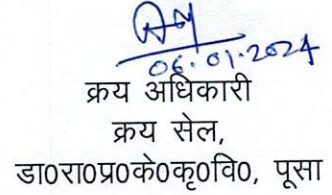 06.01.2024
क्रय अधिकारी
क्रय सेल,
डा0रा0प्र0के0कृ0वि0, पूसा